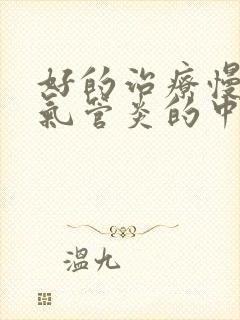 好的治療慢
氣管炎的中
溫九